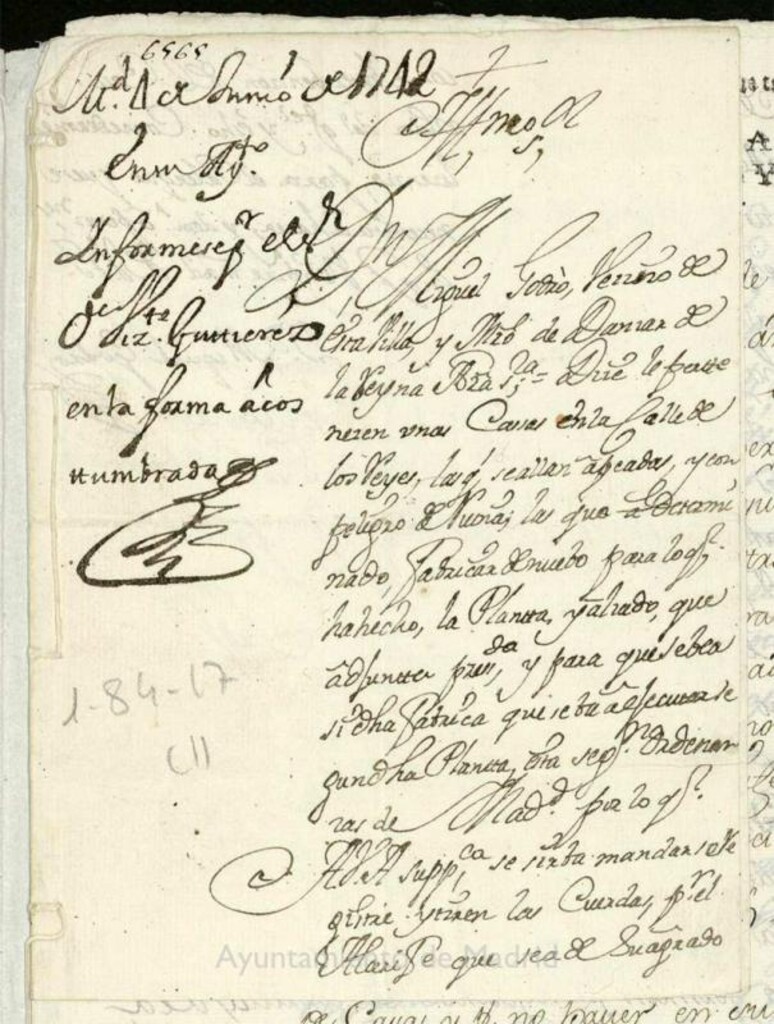 6565
M.d 4 de Junio de 1742
En su Ay.to
Informese p.r el S.r
D.n
Gutierrez
en la forma acos
tumbrada
1-84-17
Yll.mo S.or
D.n Miguel Godro, Vezino de
esta Villa, y Mro de Damas de
la Reyna N.ra S.ra = Dize le perte
nezen unas Casas en la Calle de
los Reyes, las q.e se allan apeadas, y con
peligro de Ruina; las que a Determi
nado, Fabricar de nuebo para lo q.e
ha hecho, la Planta, y alzado, que
adjunta pres.da, y para que se bea
si dha Fabrica que se ba a Ejecutar se
gun dha Planta, esta seg.n Ordenan
zas de Mad.d por lo q.e
A V.A supp.ca se sirba mandar se Re
y tiren las Cuerdas, p.r el
Alarife que sea de Su agrado
Ayuntamiento de Madrid
de Casas y no hauer en